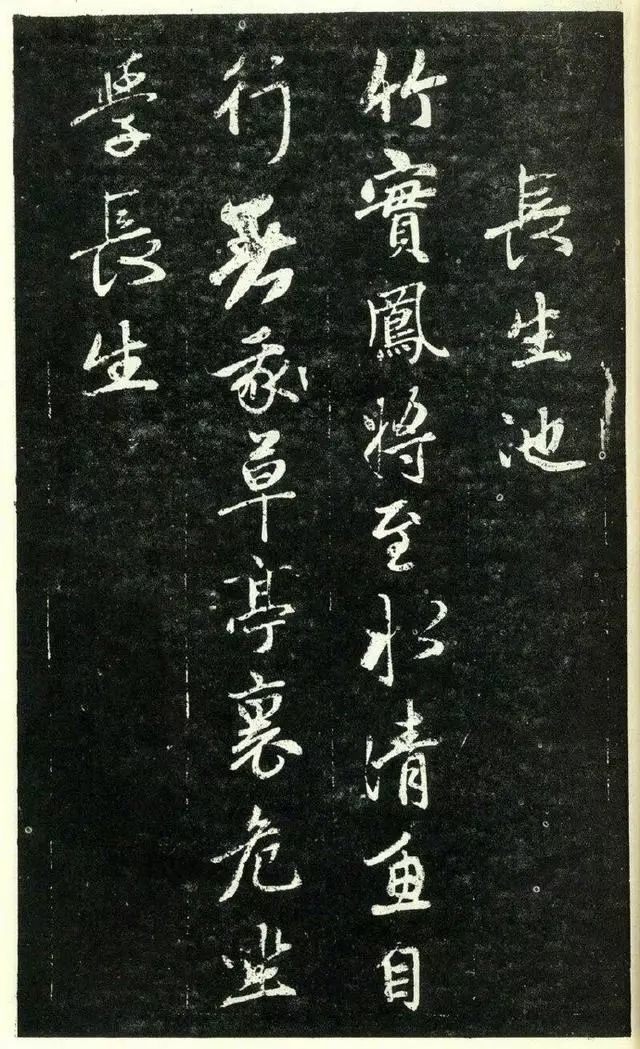 長生池
竹實鳳將至水清魚自
行著我草亭裏危坐
學長生